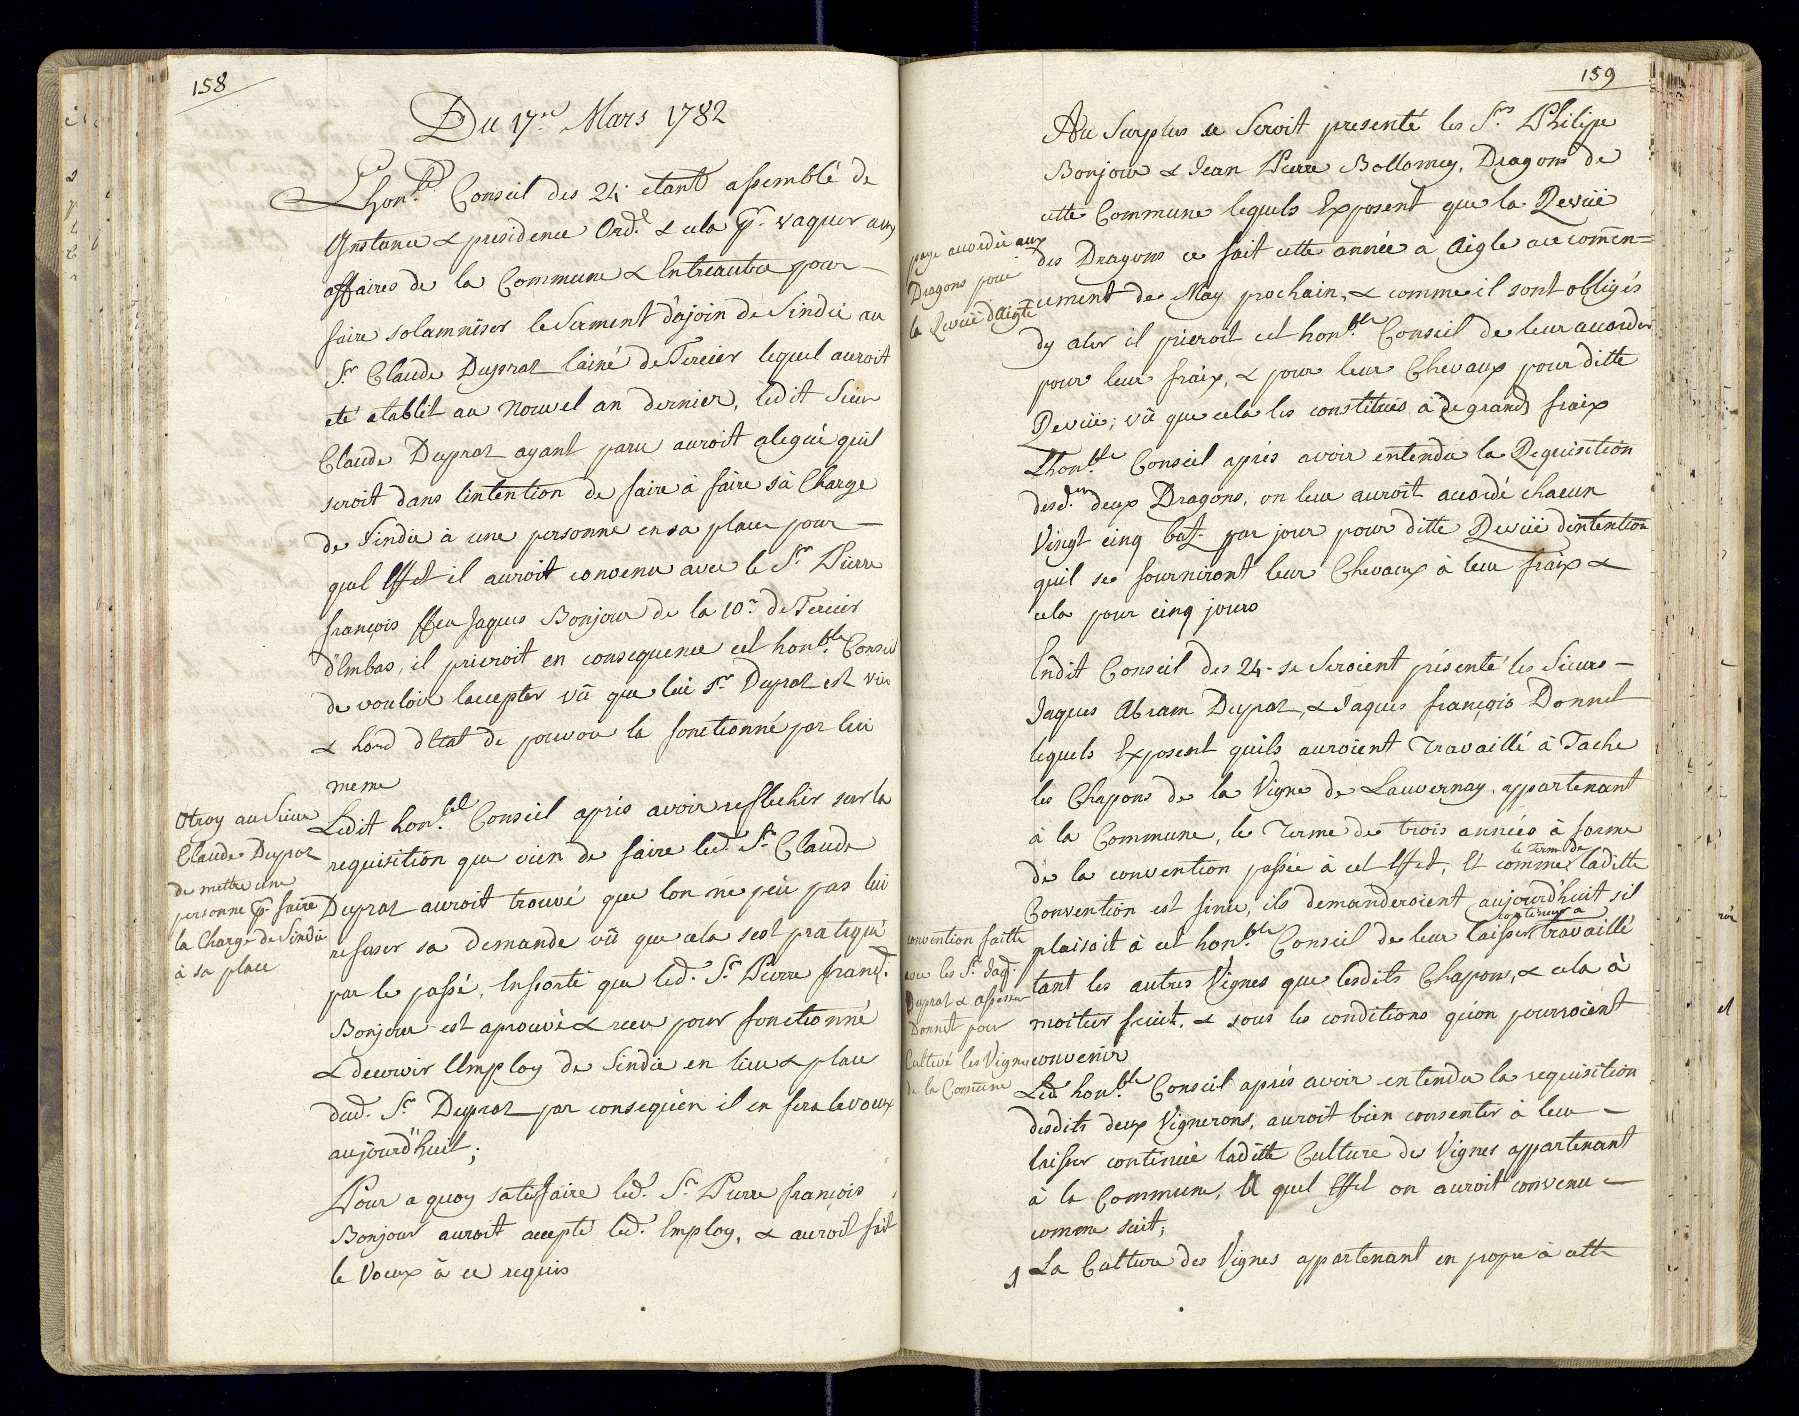 158
Du 17.e Mars 1782
Lhon.ble Conseil des 24 etant assemblé de
Instance & presidence Ord.e & cela pr. vaquer aux
affaires de la Commune & Entreautre pour
faire solamniser le Serment d'ajoin de Sindic au
S.r Claude Dupraz lainé de Tercier lequel auroit
eté etablit au Nouvel an dernier, ledit Sieur
Claude Dupraz ayant paru auroit alegué quil
seroit dans lintention de faire à faire sà Charge
de Sindic à une personne en sa place pour
quel Effet il auroit convenu avec le S.r Pierre
françois ffeu Jaques Bonjour de la 10.e de Tercier
d'Embas, il prieroit en consequence cet hon.ble Conseil
de vouloir laccepter vû que lui S.r Dupraz est vieu
& hord d'Etat de pouvoir la fonctionné par lui
meme
Otroy au Sieur
Claude Dupraz
de mettre une
personne pr. faire
la Charge de Sindic
à sa place
Ledit hon.ble Conseil aprés avoir reflechir sur la
requisition que vien de faire led. S.r Claude
Dupraz auroit trouvé que lon ne peu pas lui
refuser sa demande vû que cela sest pratiqué
par le passé, Ensorte que led. S.r Pierre franç.
Bonjour est aprouvé & recu pour fonctionné
& decervir lEmploy de Sindic en lieu & place
dud. S.r Dupraz par consequèn il en fera le voeux
aujourd'huit;
Pour a quoy satisfaire led. S.r Pierre françois
Bonjour auroit accepté led. Employ, & auroit fait
le Voeux à ce requis
159
Au Surplus ce Seroit presenté les S.rs Philipe
Bonjour & Jean Pierre Bollomey, Dragons de
cette Commune lequels Exposent que la Revüe
des Dragons ce fait cette année à Aigle au comen=
page accordée aux
Dragons pour
la Revüe d'Aigle
cement de May prochain, & comme il sont obligés
dy aler il prieroit cet hon.ble Conseil de leur accorder
pour leur fraix, & pour leur Chevaux pour ditte
Revüe; vû que cela les constitués à de grand fraix
Lhon.ble Conseil aprés avoir entendu la Requisition
desd. deux Dragons, on leur auroit accordé chacun
Vingt cinq batz. par jour pour ditte Revüe dintention
quil se fourniront leur Chevaux à leur fraix &
cela pour cinq jours
Endit Conseil des 24 se Seroient présenté les Sieurs
Jaques Abram Dupraz, & Jaques françois Donnet
lequels Exposent quils auroient Travaillé à Tache
les Chapons de la Vigne de Lauvernay, appartenant
à la Commune, le Terme de trois années à forme
de la convention passée à cet Effet, Et comme le Term de laditte
Convention est finie, ils demanderoient aujourd'huit sil
plaisoit à cet hon.ble Conseil de leur laisser continuer a travaillé
convention faitte
avec les S.r Jaq.
Dupraz & assesseur
Donnet pour
Cultivé les Vignes
de la Comune
tant les autres Vignes que lesdits Chapons, & cela à
moitier fruit, & sous les conditions qu'on pourroient
convenir
Led. hon.ble Conseil aprés avoir entendu la requisition
desdits deux Vignerons, auroit bien consenter à leur
laisser continué laditte Culture de Vignes appartenant
à la Commune, A quel Effet on auroit convenu
comme suit;
1 La Culture des Vignes appartenant en propre à cette